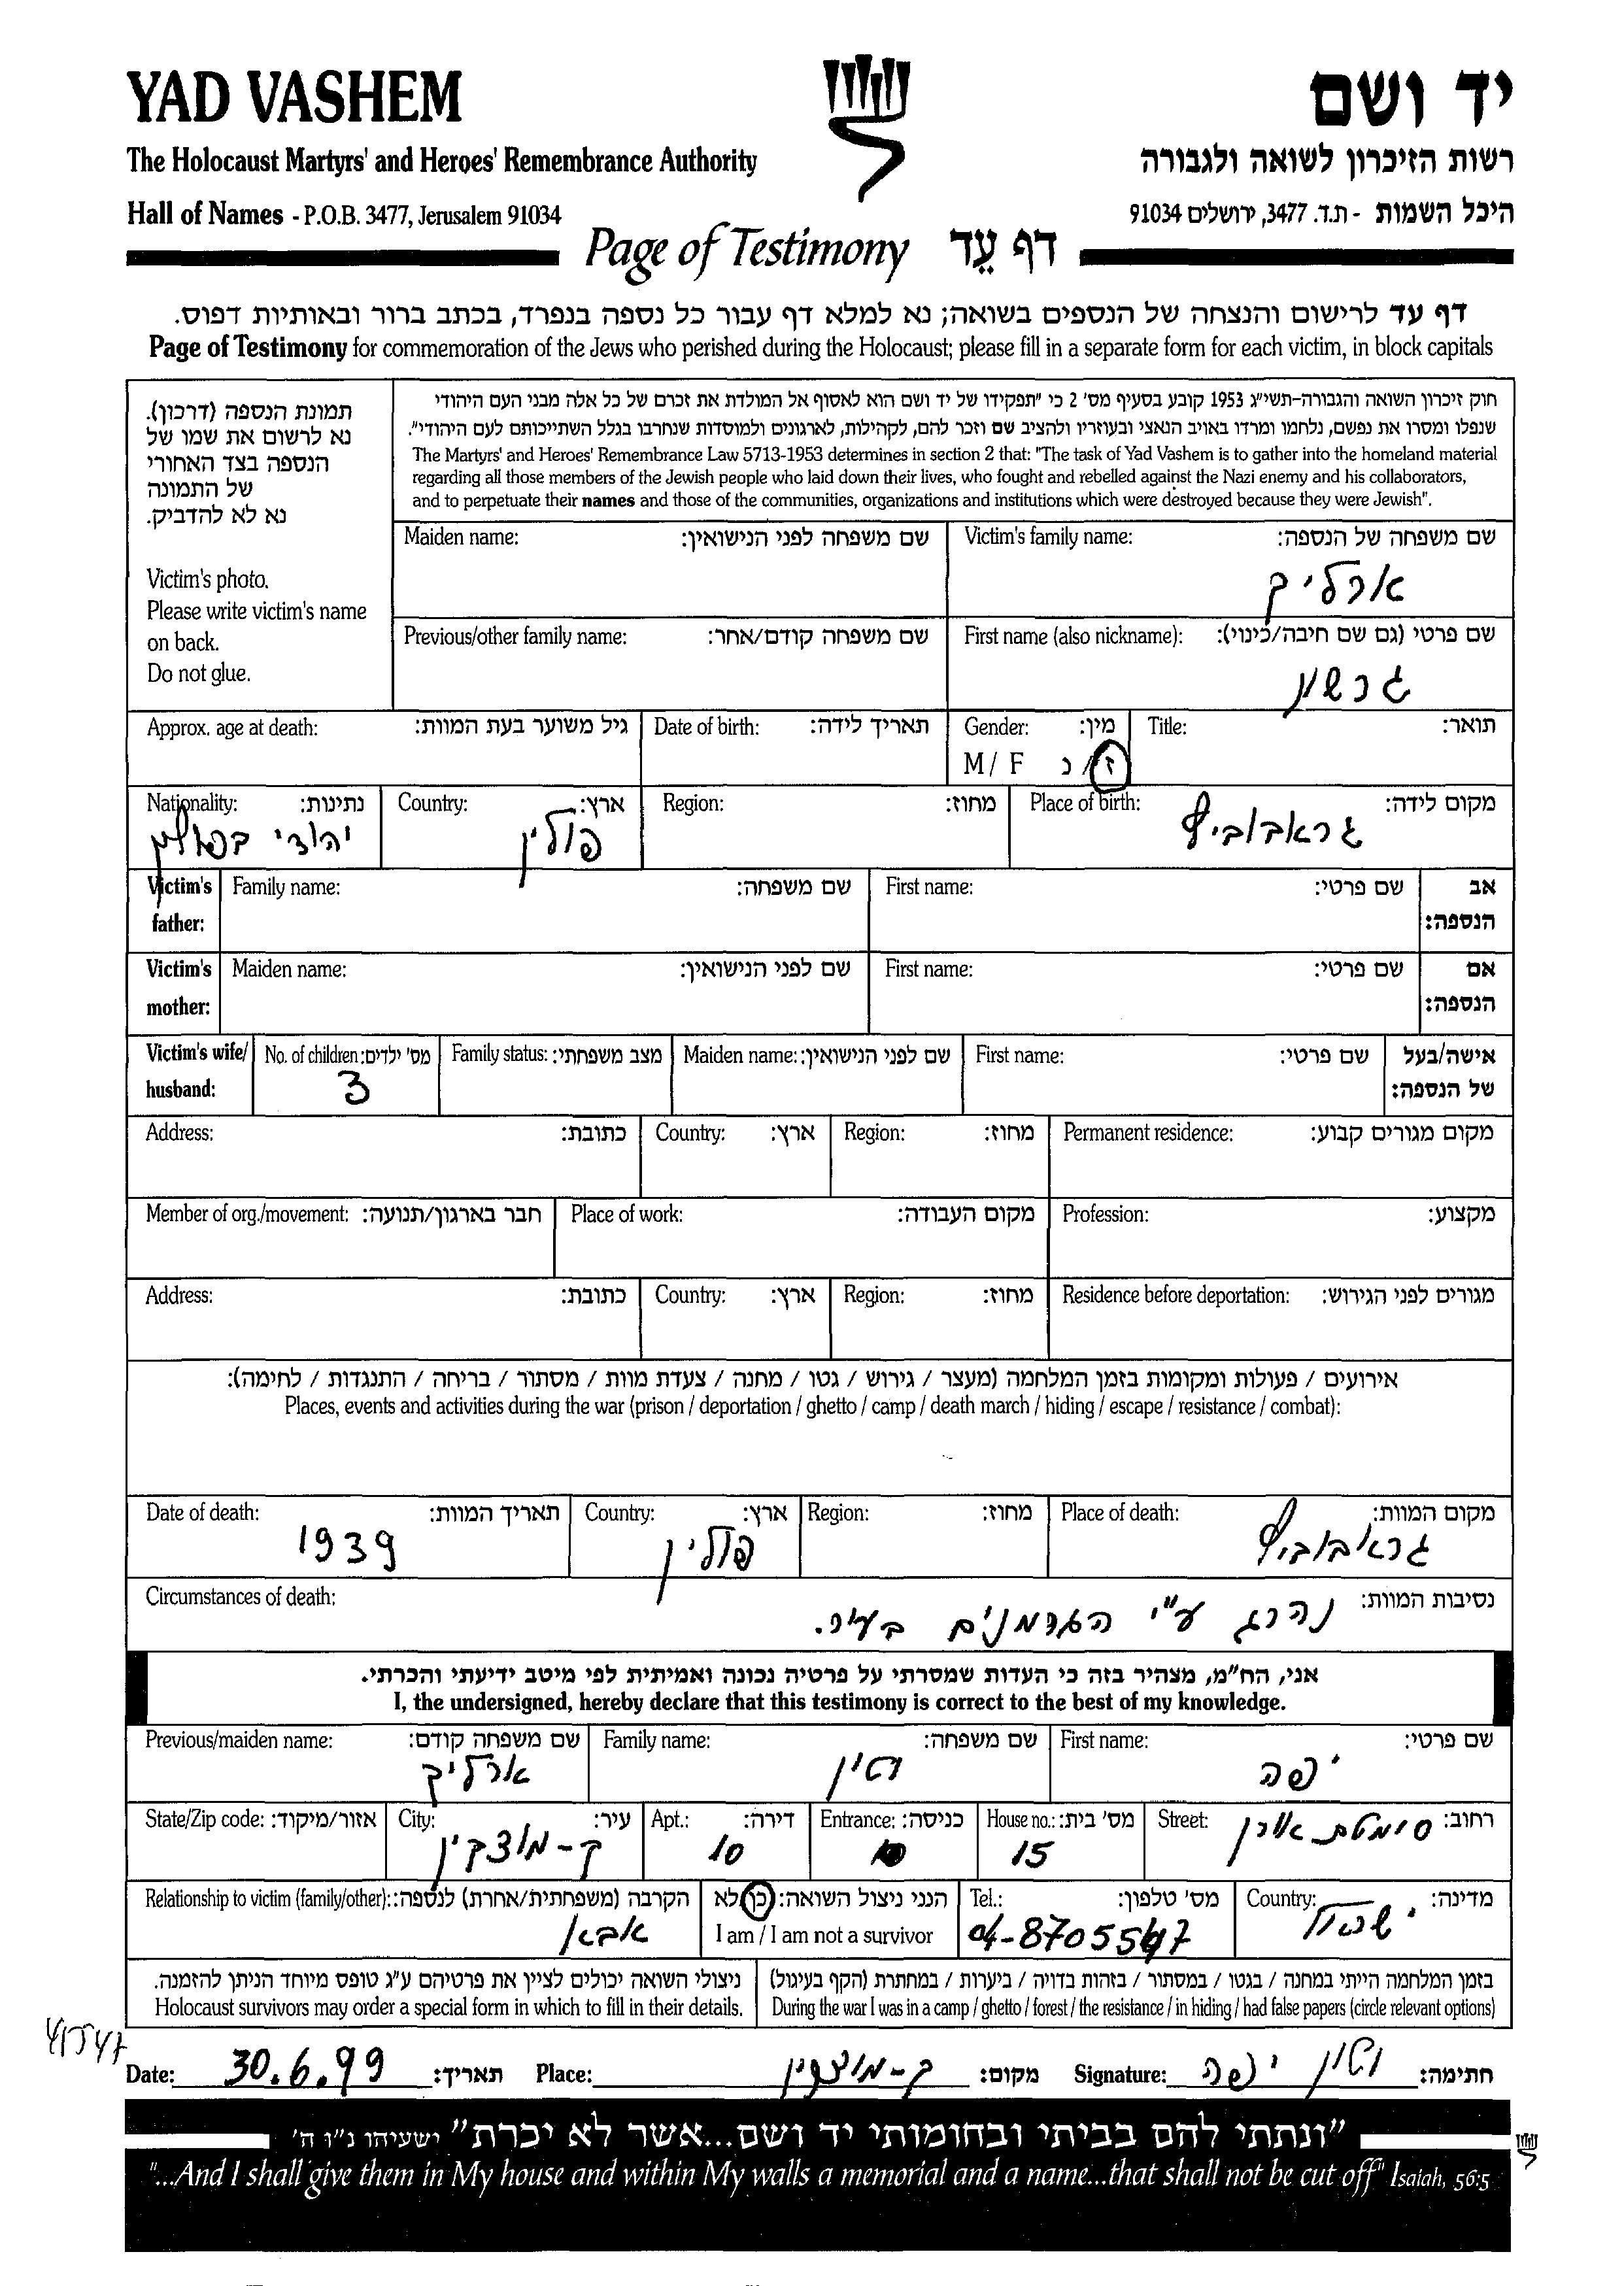 YAD VASHEM יד ושם
The Holocaust Martyrs' and Heroes' Remembrance Authority רשות הזיכרון לשואה ולגבורה
Hall of Names - P.O.B. 3477, Jerusalem 91034 היכל השמות - ת.ד. 3477, ירושלים 91034
Page of Testimony דף עֵד
דף עד לרישום והנצחה של הנספים בשואה; נא למלא דף עבור כל נספה בנפרד, בכתב ברור ובאותיות דפוס.
Page of Testimony for commemoration of the Jews who perished during the Holocaust; please fill in a separate form for each victim, in block capitals
תמונת הנספה (דרכון).
נא לרשום את שמו של
הנספה בצד האחורי
של התמונה
נא לא להדביק.
Victim's photo.
Please write victim's name
on back.
Do not glue.
חוק זיכרון השואה והגבורה-תשי"ג 1953 קובע בסעיף מס' 2 כי "תפקידו של יד ושם הוא לאסוף אל המולדת את זכרם של כל אלה מבני העם היהודי
שנפלו ומסרו את נפשם, נלחמו ומרדו באויב הנאצי ובעוזריו ולהציב שם וזכר להם, לקהילות, לארגונים ולמוסדות שנחרבו בגלל השתייכותם לעם היהודי".
The Martyrs' and Heroes' Remembrance Law 5713-1953 determines in section 2 that: "The task of Yad Vashem is to gather into the homeland material
regarding all those members of the Jewish people who laid down their lives, who fought and rebelled against the Nazi enemy and his collaborators,
and to perpetuate their names and those of the communities, organizations and institutions which were destroyed because they were Jewish".
Maiden name: שם משפחה לפני הנישואין: Victim's family name: שם משפחה של הנספה:
ארליך
Previous/other family name: שם משפחה קודם/אחר: First name (also nickname): שם פרטי (גם שם חיבה/כינוי):
גרשון
Approx. age at death: גיל משוער בעת המוות: Date of birth: תאריך לידה: Gender: מין: Title: תואר:
M / F ז/נ
Nationality: נתינות: Country: ארץ: Region: מחוז: Place of birth: מקום לידה:
יהודי בפולין פולין גראבוביץ
Victim's father: Family name: שם משפחה: First name: שם פרטי: אב הנספה:
Victim's mother: Maiden name: שם לפני הנישואין: First name: שם פרטי: אם הנספה:
Victim's wife/ husband: No. of children: מס' ילדים: Family status: מצב משפחתי: Maiden name: שם לפני הנישואין: First name: שם פרטי: אישה/בעל של הנספה:
3
Address: כתובת: Country: ארץ: Region: מחוז: Permanent residence: מקום מגורים קבוע:
Member of org./movement: חבר בארגון/תנועה: Place of work: מקום העבודה: Profession: מקצוע:
Address: כתובת: Country: ארץ: Region: מחוז: Residence before deportation: מגורים לפני הגירוש:
אירועים / פעולות ומקומות בזמן המלחמה (מעצר / גירוש / גטו / מחנה / צעדת מוות / מסתור / בריחה / התנגדות / לחימה):
Places, events and activities during the war (prison / deportation / ghetto / camp / death march / hiding / escape / resistance / combat):
Date of death: תאריך המוות: Country: ארץ: Region: מחוז: Place of death: מקום המוות:
1939 פולין גראבוביץ
Circumstances of death: נסיבות המוות:
נהרג ע"י הגרמנים בעיר.
אני, הח"מ, מצהיר בזה כי העדות שמסרתי על פרטיה נכונה ואמיתית לפי מיטב ידיעתי והכרתי.
I, the undersigned, hereby declare that this testimony is correct to the best of my knowledge.
Previous/maiden name: שם משפחה קודם: Family name: שם משפחה: First name: שם פרטי:
ארליך וטין יפה
State/Zip code: אזור/מיקוד: City: עיר: Apt.: דירה: Entrance: כניסה: House no.: מס' בית: Street: רחוב:
ק-מוצקין 10 15 סימטת אורן
Relationship to victim (family/other): הקרבה (משפחתית/אחרת) לנספה: הנני ניצול השואה: כן/לא Tel.: מס' טלפון: Country: מדינה:
אבא I am / I am not a survivor 04-8705547 ישראל
ניצולי השואה יכולים לציין את פרטיהם ע"ג טופס מיוחד הניתן להזמנה. בזמן המלחמה הייתי במחנה / בגטו / במסתור / בזהות בדויה / ביערות / במחתרת (הקף בעיגול)
Holocaust survivors may order a special form in which to fill in their details. During the war I was in a camp / ghetto / forest / the resistance / in hiding / had false papers (circle relevant options)
Date: 30.6.99 תאריך: Place: ק-מוצקין מקום: Signature: וטין יפה חתימה:
"ונתתי להם בביתי ובחומותי יד ושם...אשר לא יכרת" ישעיהו נ"ו ה'
"...And I shall give them in My house and within My walls a memorial and a name...that shall not be cut off" Isaiah, 56:5